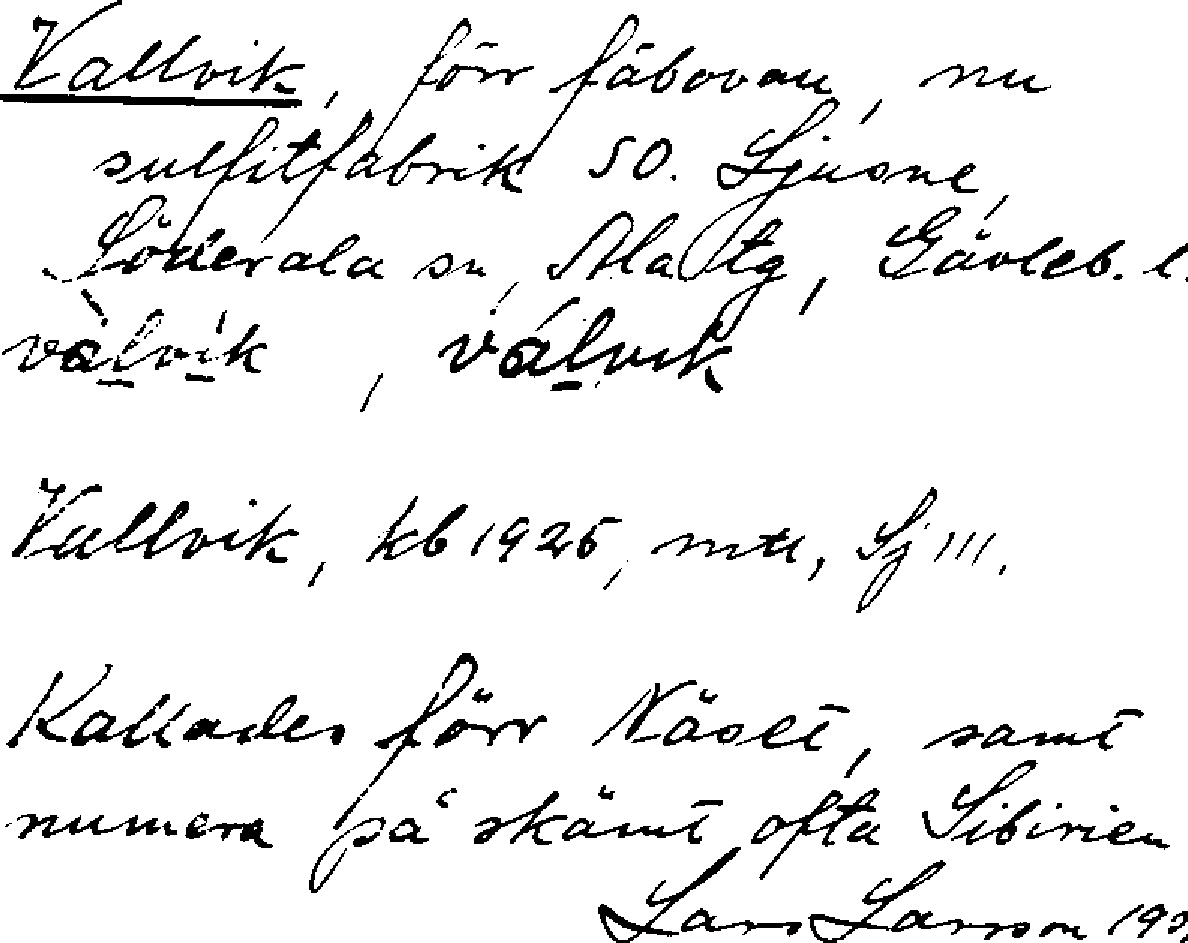 Vallvik, förr fäbovall, nu
sulfitfabrik SO. Ljusne,
Söderala sn, Ala tg, Gävleb. l.
vàlvík, válvìk
Vallvik, kb 1925, mtl, Sj III.
Kallades förr Näset, samt
numera på skämt ofta Sibirien
Lars Larsson